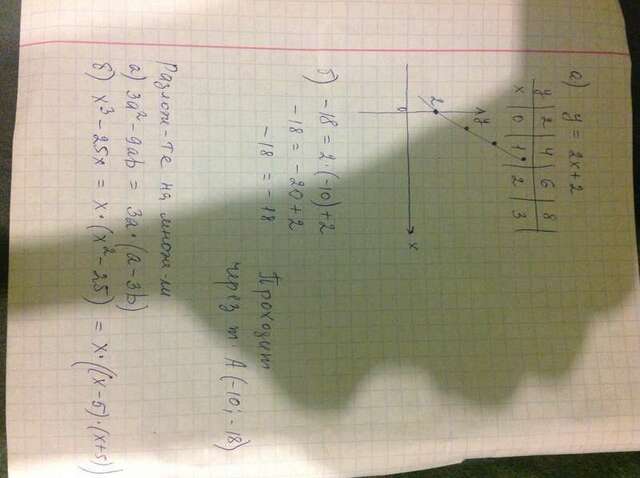 а) y = 2x + 2
y | 2 | 4 | 6 | 8
x | 0 | 1 | 2 | 3
y
2
0
x
б) -18 = 2·(-10)+2
-18 = -20+2
-18 = -18
Проходит
через т. А (-10; -18)
Разлож-те на множ-ли
а) 3a² - 9ab = 3a·(a - 3b)
б) x³ - 25x = x·(x² - 25) = x·((x-5)·(x+5))